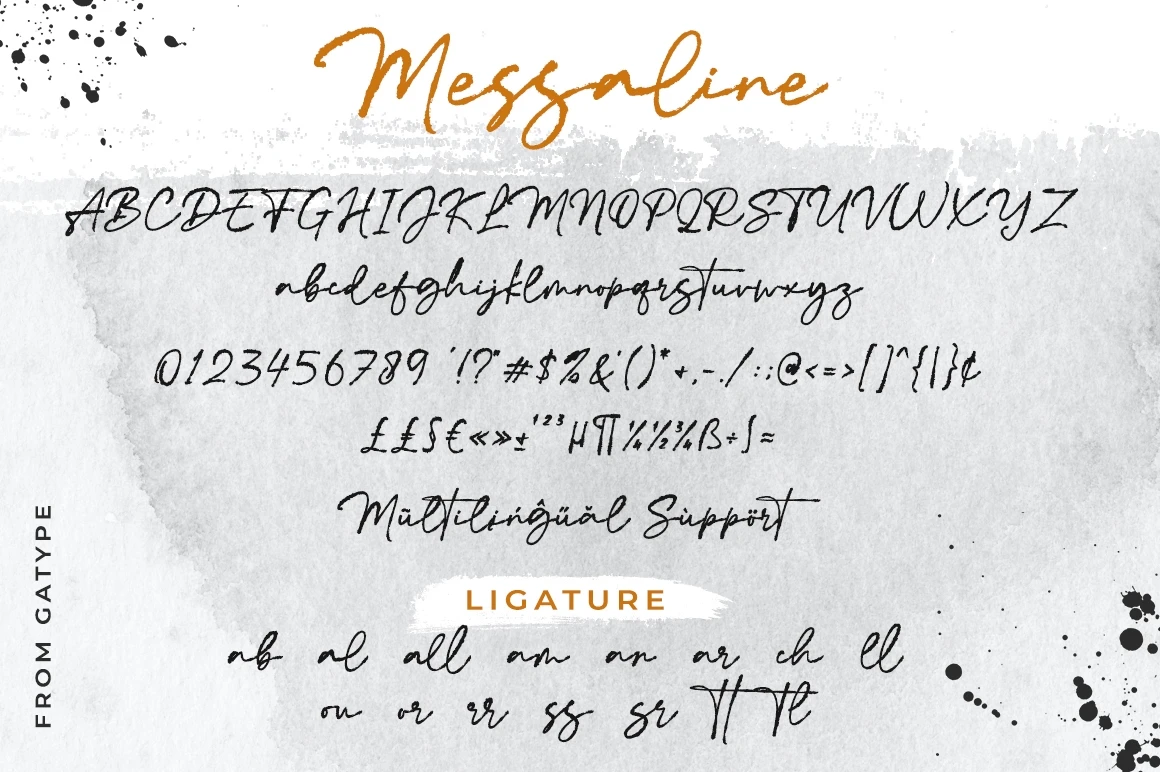 Messaline
ABCDEFGHIJKLMNOPQRSTUVWXYZ
abcdefghijklmnopqrstuvwxyz
0123456789 '!?"#$%&'()*+,-./:;@<=>[]^{|}¢
££§€«»±¹²³µ¶¼½¾ß÷∫≈
Mültilińĝűăl Sùppört
LIGATURE
ab al all am an ar ch ll
ou or rr ss sr tt tl
FROM GATYPE